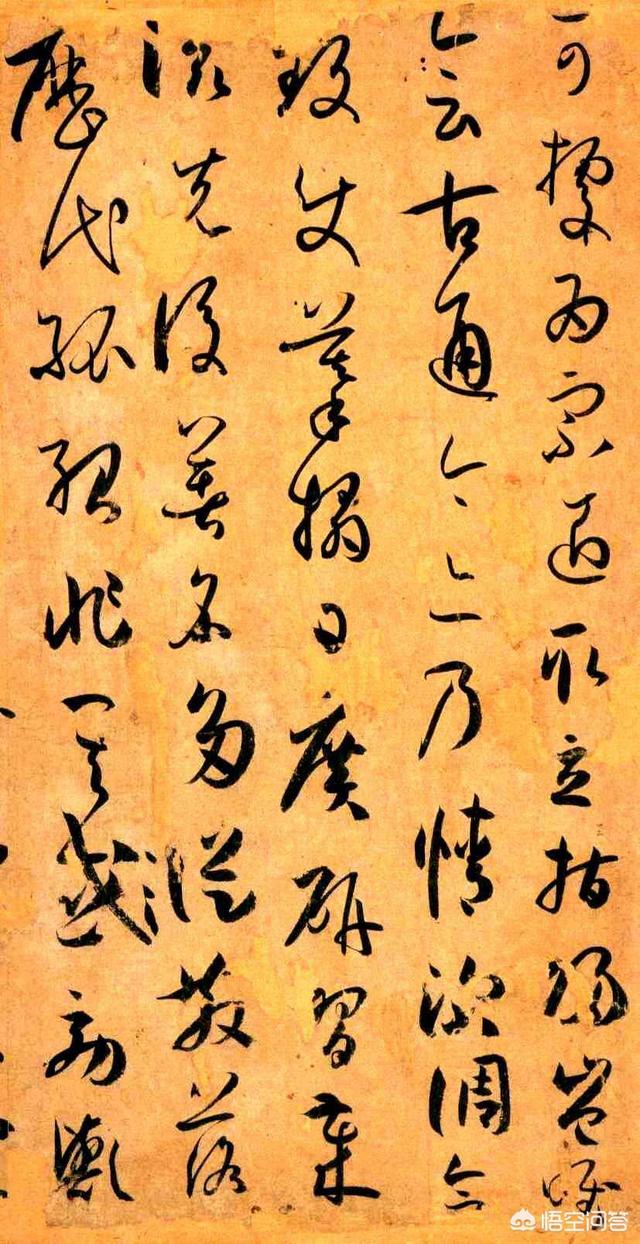 可據為宗匠取立指歸豈唯
會古通今亦乃情深調合
致使摹搨日廣研習歲
滋先後著名多從散落
歷代孤紹非其效歟
悟空问答